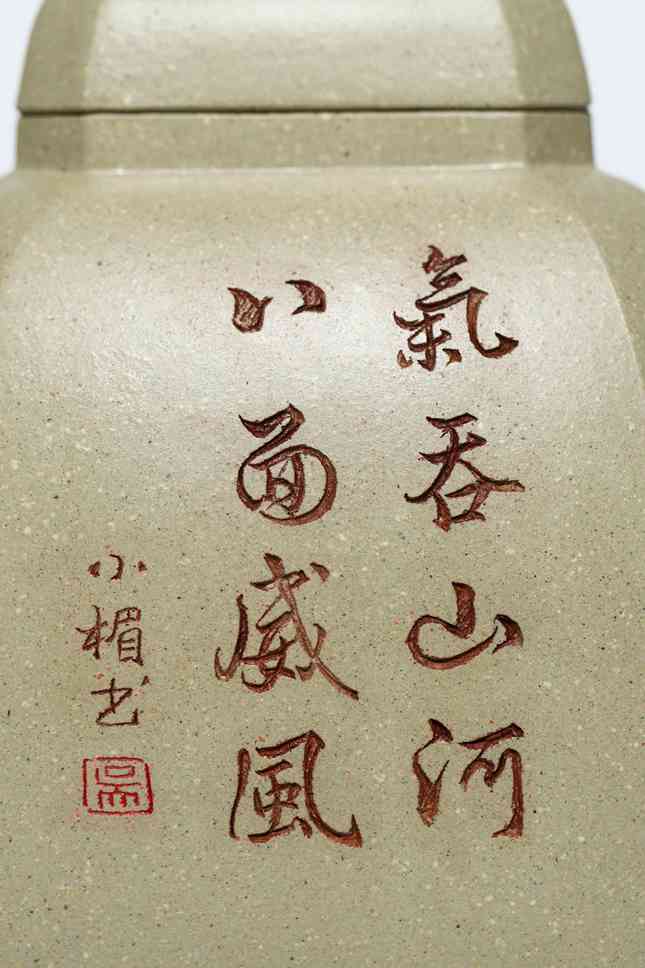 氣吞山河
八面威風
小楣书